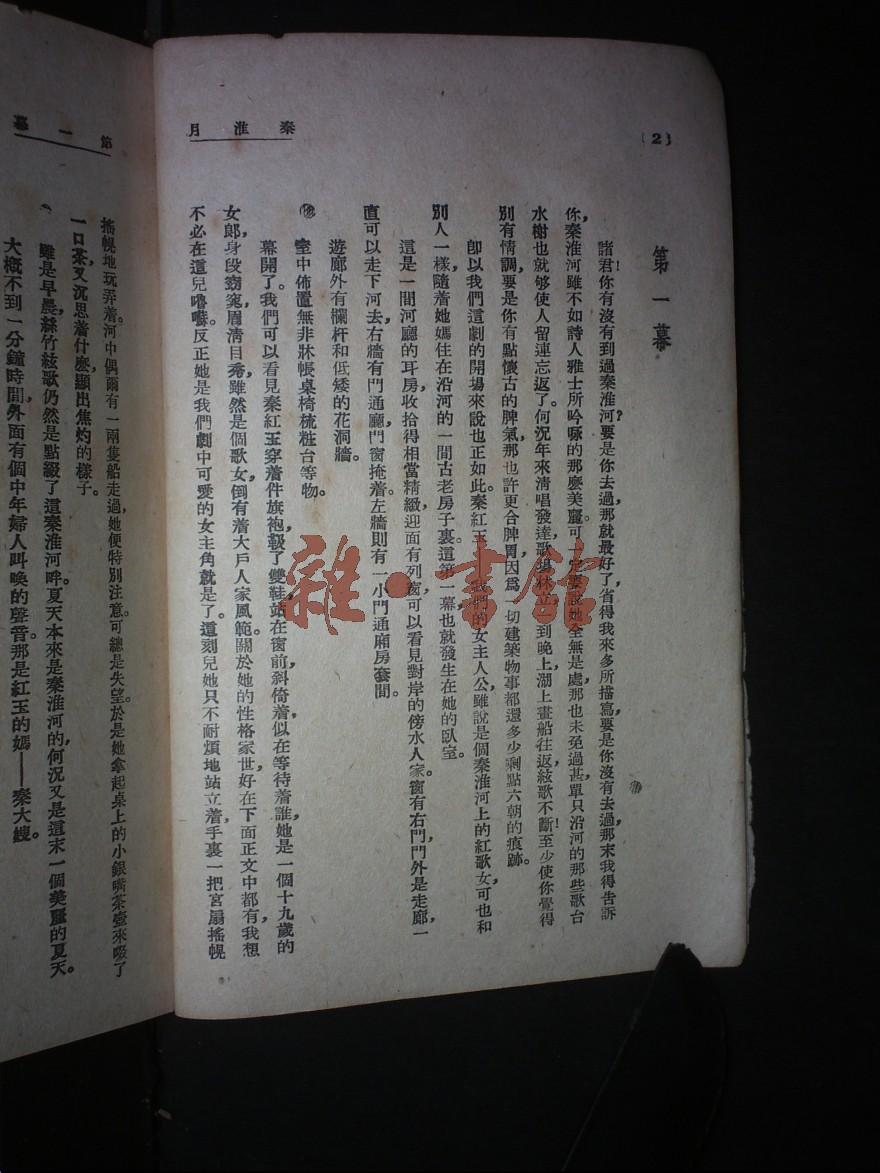 (2)
秦淮月
第一幕
諸君!你有沒有到過秦淮河?要是你去過,那就最好了,省得我來多所描寫,要是你沒有去過,那末我得告訴
你,秦淮河雖不如詩人雅士所吟啄的那麼美麗,可一定要說她全無是處,那也未免過甚,單只沿河的那些歌台
水榭也就够使人留連忘返了。何況年來清唱發達,歌場林立,一到晚上,湖上畫船往返,絃歌不斷!至少使你覺得
別有情調,要是你有點懷古的脾氣,那也許更合脾胃,因爲一切建築物事都還多少剩點六朝的痕跡。
卽以我們這劇的開場來說也正如此。秦紅玉,我們的女主人公,雖說是個秦淮河上的紅歌女,可也和
別人一樣,隨着她媽住在沿河的一間古老房子裏,這第一幕也就發生在她的臥室。
這是一間河廳的耳房,收拾得相當精緻,迎面有列窗,可以看見對岸的傍水人家,窗有右門,門外是走廊,一
直可以走下河去,右牆有門通廳,門窗掩着,左牆則有一小門通廂房套間。
遊廊外有欄杆和低矮的花洞牆。
室中佈置無非牀帳桌椅梳粧台等物。
幕開了。我們可以看見秦紅玉穿着件旗袍,靸了雙鞋站在窗前,斜倚着,似在等待着誰,她是一個十九歲的
女郎,身段窈窕,眉清目秀,雖然是個歌女,倒有着大戶人家風範。關於她的性格家世好在下面正文中都有,我想
不必在這兒嚕囌。反正她是我們劇中可愛的女主角就是了。這刻兒她只不耐煩地站立着,手裏一把宮扇搖幌
第一幕
搖幌地玩弄着。河中偶爾有一兩隻船走過,她便特別注意。可總是失望,於是她拿起桌上的小銀嘴茶壺來啜了
一口茶,又沉思着什麼,顯出焦灼的樣子。
雖是早晨,絲竹絃歌仍然是點綴了這秦淮河畔。夏天本來是秦淮河的,何況又是這末一個美麗的夏天。
大概不到一分鐘時間,外面有個中年婦人叫喚的聲音。那是紅玉的媽——秦大嫂。
雜·書館